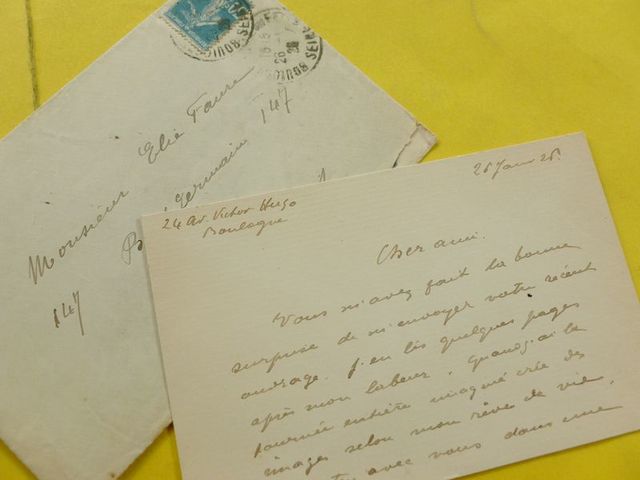 Monsieur Élie Faure
147
Bd St Germain 147
BOULOGNE
SEINE
26
24 Av. Victor Hugo
Boulogne
26 Janv 26.
Cher ami.
Vous m'avez fait la bonne
surprise de m'envoyer votre récent
ouvrage. J'en lis quelques pages
après mon labeur. Quand j'ai la
journée entière imaginé créé des
images selon mon rêve de vie,
avec vous dans une